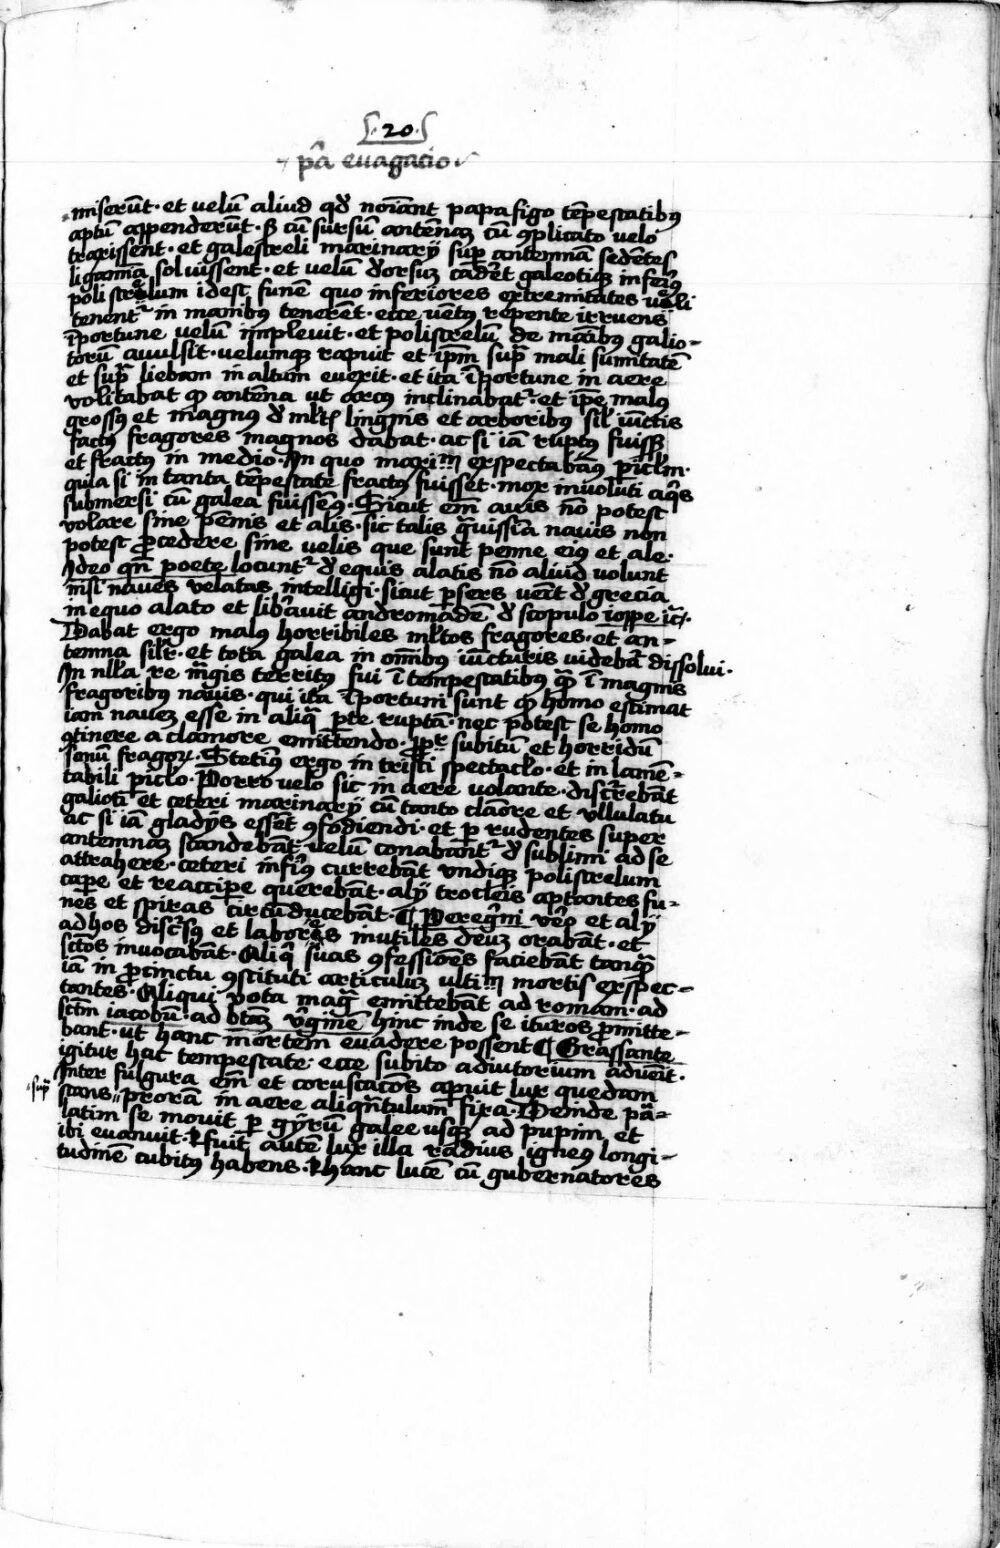 .20.
p̄a evagatio
miserūt · et velū aliud qd̄ noīant papafigo tēpestatibus
aptū appenderūt · S; cū sursū antēnaꝫ cū ꝯplicato velo
traxissent · et galestreli marinarÿ sup̄ antemna sedētes
ligamina solvissent · et velū dorsuꝫ cad'et galeotiqꝫ inferiꝰ
poli strelum idest funem quo inferiores extremitates veli
tenent᷑ in manibꝰ tenerēt · ecce vētus repente irruens
īportune velū implevit · et polistrelū de manibus galio-
torū avulsit · velumqꝫ rapuit et ip̄m sup̄ mali sumitatē
et sup̄ liebam in altum evexit · et ita īportune in aere
volitabat qꝫ antēna ut arcus inclinabat᷑ · et ip̄e malus
grossꝰ et magnus d' ml̄tis lingnis et arboribus sil̄ iūctis
factus fragores magnos dabat · ac si iā ruptꝰ fuissꝫ
et fractꝰ in medio · In quo mari exspectabāꝰ picl̄m ·
quia si in tanta tēpestate fractꝰ fuisset · mox involuti aq̄s
submersi cū galea fuissemꝰ · Sicut em̄ avis nō potest
volare sine pēnis et alis · sic talis g̃vissīa navis non
potest p̄cedere sine velis que sunt penne eiꝰ et ale ·
Ideo qn̄ poete locunt᷑ d' equis alatis nō aliud volunt
nisi naves velatas intelligi · sicut p̄sers venit d' grecia
in equo alato et lib'avit andromādē d' scopulo ioppe ic̄ ·
Dabat ergo malꝰ horribiles ml̄tos fragores · et an-
temna sil̄r · et tota galea in om̄ibus iūcturis videbat᷑ dissolvi ·
In nll̄a re m̄gis territꝰ fui ī tempestatibꝰ q̄ꝫ ī magnis
fragoribus navis · qui ita īportuni sunt qꝫ homo estimat
iam naveꝫ esse in aliq̄ p̄te ruptā · nec potest se homo
ꝯtinere a clamore emittendo · pp̄ subitū et horridū
sonū fragorꝫ · Stetimꝰ ergo in tristi spectacl̄o · et in lamē-
tabili picl̄o · Porro velo sic in aere volante · discurrebāt
galioti et ceteri marinarÿ cū tanto clamore et ullulatu
ac si iā gladÿs essēt ꝯfodiendi · et p̄ rudentes super
antemnaꝫ scandebāt velū conabant᷑ d' sublimi ad se
attrahere · ceteri infiꝰ currebāt undiqꝫ polistrelum
cape et reaccipe querebāt · alÿ trocleis aptantes fu-
nes et spiras circūducebāt · ¶ Peregrini v'o et alÿ
ad hos discursꝰ et labores inutiles deuꝫ orabāt · et
sc̄tos invocabāt · Aliq̄ suas ꝯfessiones faciebāt tanq̄ꝫ
iā in p̄cinctu ꝯstituti articuluꝫ ultim̄ mortis exspec-
tantes · Aliqui vota mag̃ emittebāt ad romam · ad
sc̄tm iacobū · ad btāꝫ v'ginē hinc inde se ituros p̄mitte-
bant · ut hanc mortem evadere possent ¶ Grassante
igitur hac tempestate · ecce subito adiutorium advēit ·
Inter fulgura em̄ et coruscatōs apuit lux quedam
·sup̄
stans prorā in aere aliqn̄tulum fixa · Deinde pau-
latim se movit p̄ gÿrū galee usqꝫ ad pupim et
ibi evanuit · fuit autē lux illa radius igneꝰ longi-
tudinē cubitꝰ habens · hanc lucē cū gubernatores